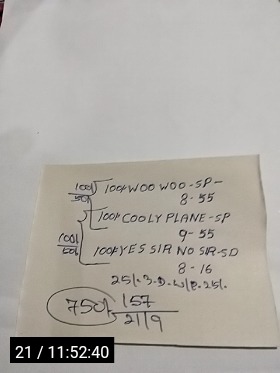 100/ 100/-WOO WOO-SP-
50/- 8-55
100/-COOLY PLANE-SP
9-55
100/ 100/-YES SIR NO SIR-SD
50/- 8-16
25/-3-D-W/P-25/-
750/- 157
21/9
21 / 11:52:40